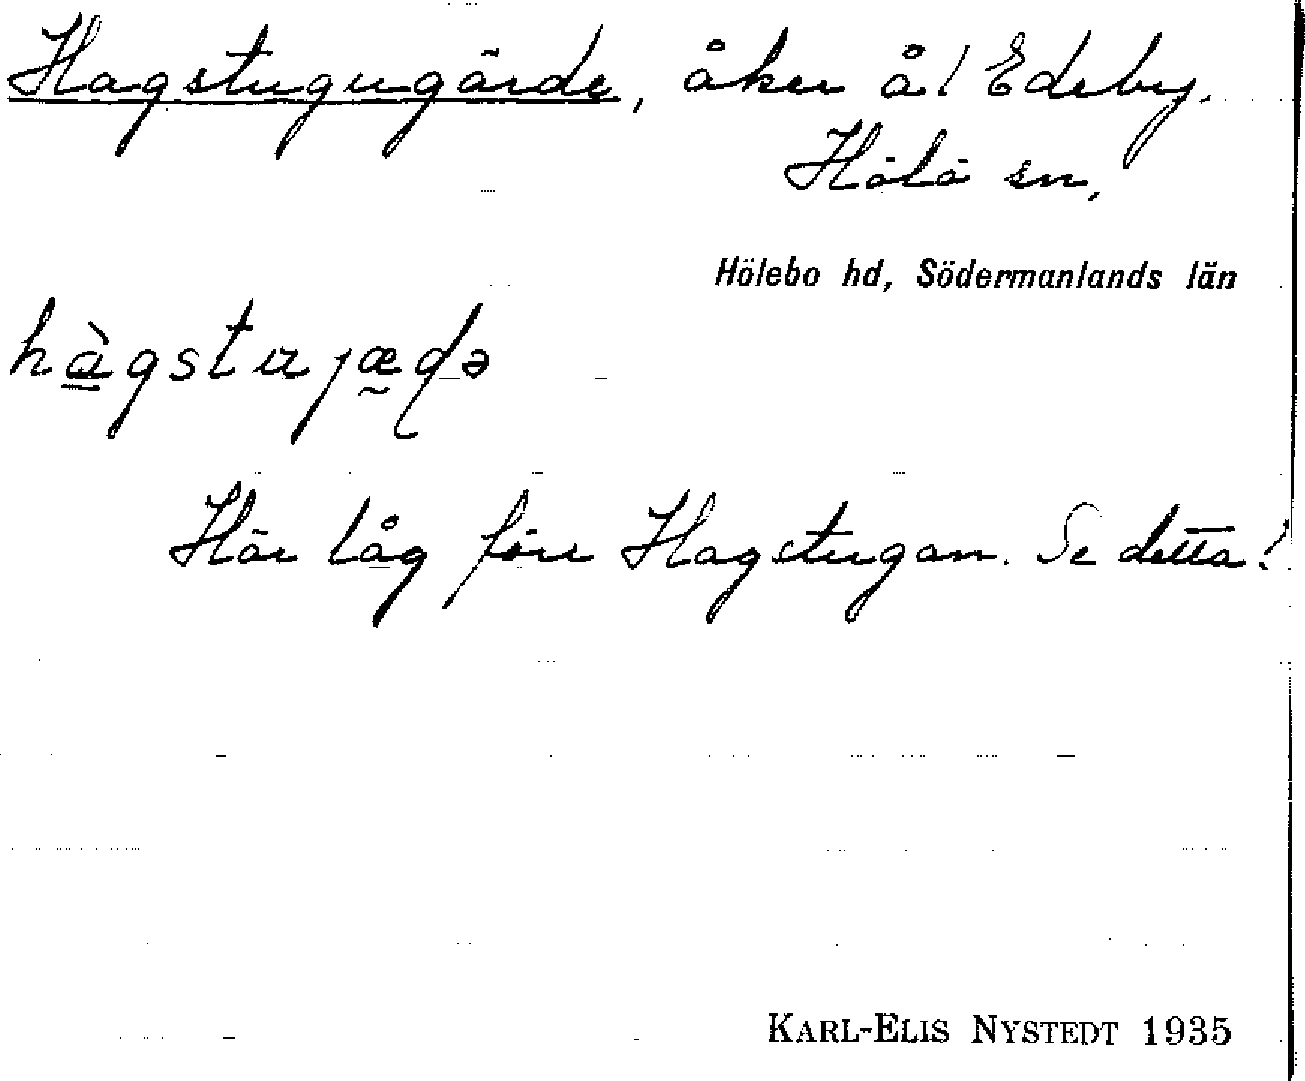 Hagstugugärde, åker å 1 Edeby.
Hölö sn,
Hölebo hd, Södermanlands län
hàgstujæɖə
Här låg förr Hagstugan. Se detta!
KARL-ELIS NYSTEDT 1935